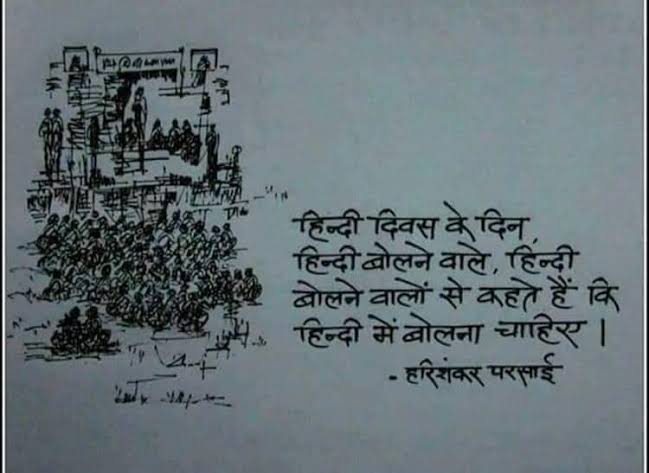 हिन्दी दिवस के दिन,
हिन्दी बोलने वाले, हिन्दी
बोलने वालों से कहते हैं कि
हिन्दी में बोलना चाहिए ।
- हरिशंकर परसाई